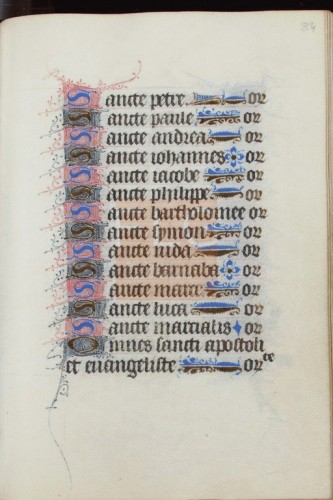 84
Sancte petre or
Sancte paule or
Sancte andrea or
Sancte iohannes or
Sancte iacobe or
Sancte philippe or
Sancte bartholomee or
Sancte symon or
Sancte iuda or
Sancte barnaba or
Sancte marce or
Sancte luca or
Sancte martialis or
Omnes sancti apostoli
et euangeliste orate